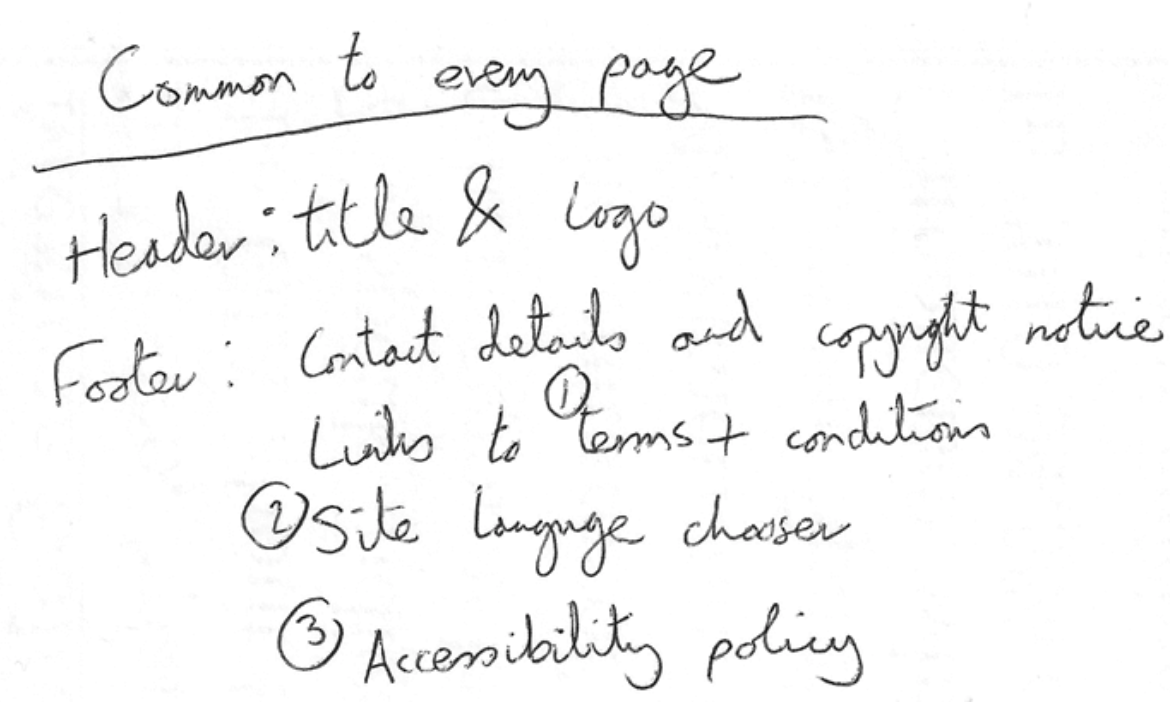 Common to every page
Header: title & Logo
Footer: Contact details and copyright notice
Links to ① terms + conditions
② Site language chooser
③ Accessibility policy